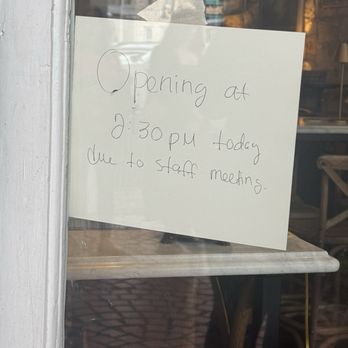 Opening at
2:30 PM today
due to staff meeting.